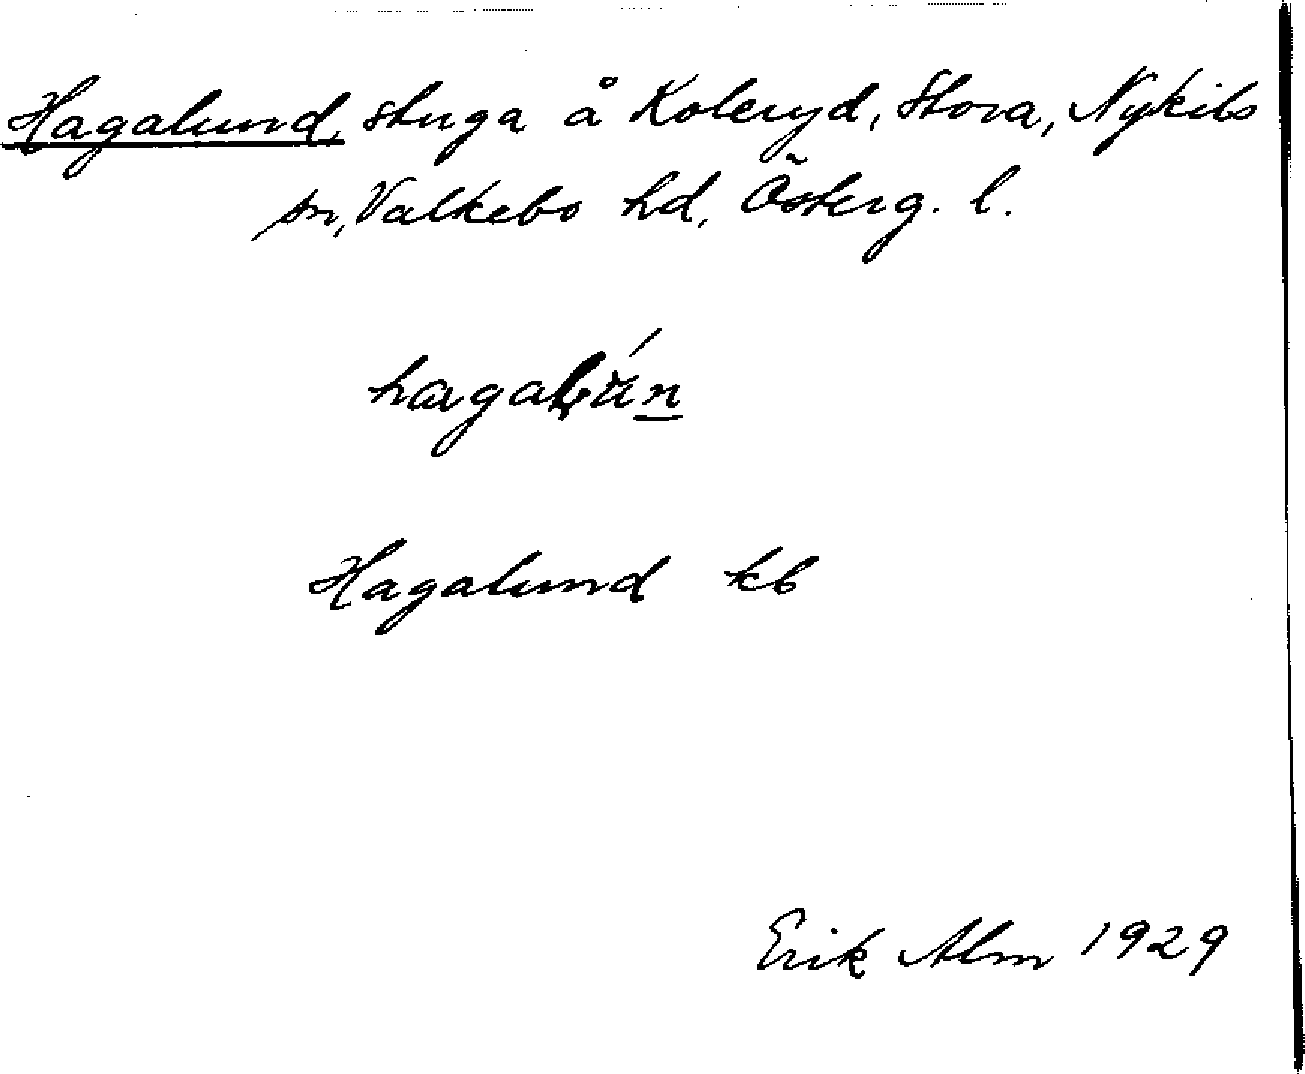 Hagalund, stuga å Koleryd, Stora, Nykils
sn, Valkebo hd, Österg. l.
Hagalund kb
Erik Alm 1929